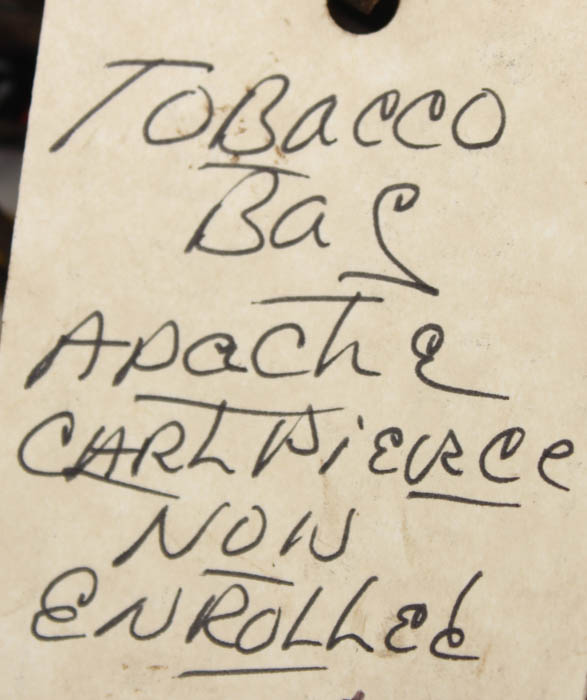 TOBACCO
BAG
APACHE
CARL PIERCE
NON
ENROLLED